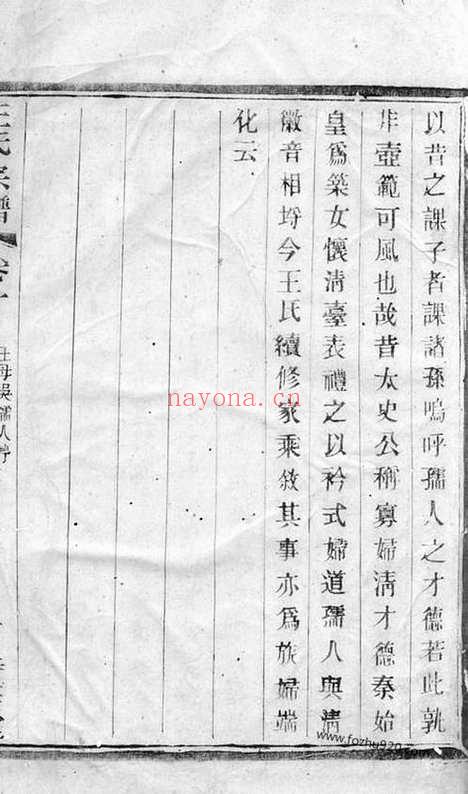 以昔之課子者課諸孫嗚呼孺人之才德若此孰
非壺範可風也哉昔太史公稱寡婦淸才德秦始
皇爲築女懷淸臺表禮之以衿式婦道孺人與淸
徽音相埒今王氏續修家乘敘其事亦爲族婦端
化云
王氏宗譜
nayona.cn
www.fozhu920.com